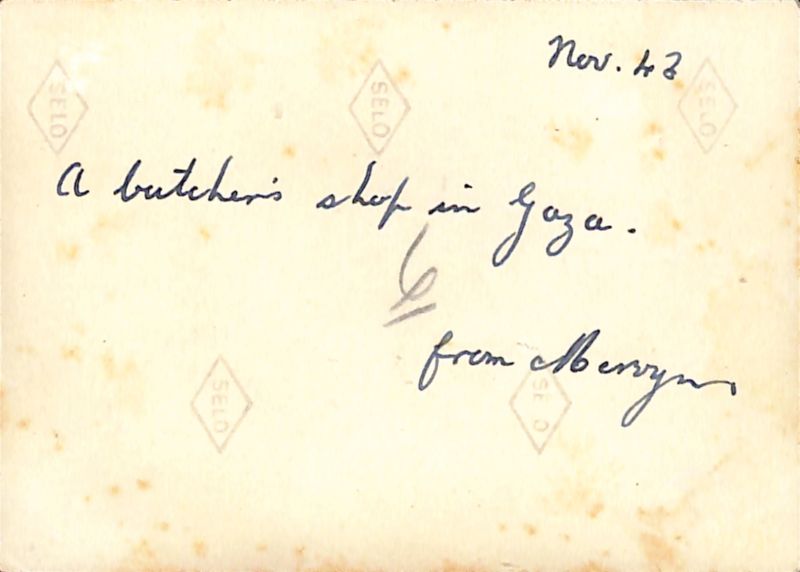 Nov. 43
SELO SELO SELO
A butcher's shop in Gaza.
6
from Mervyn
SELO SELO